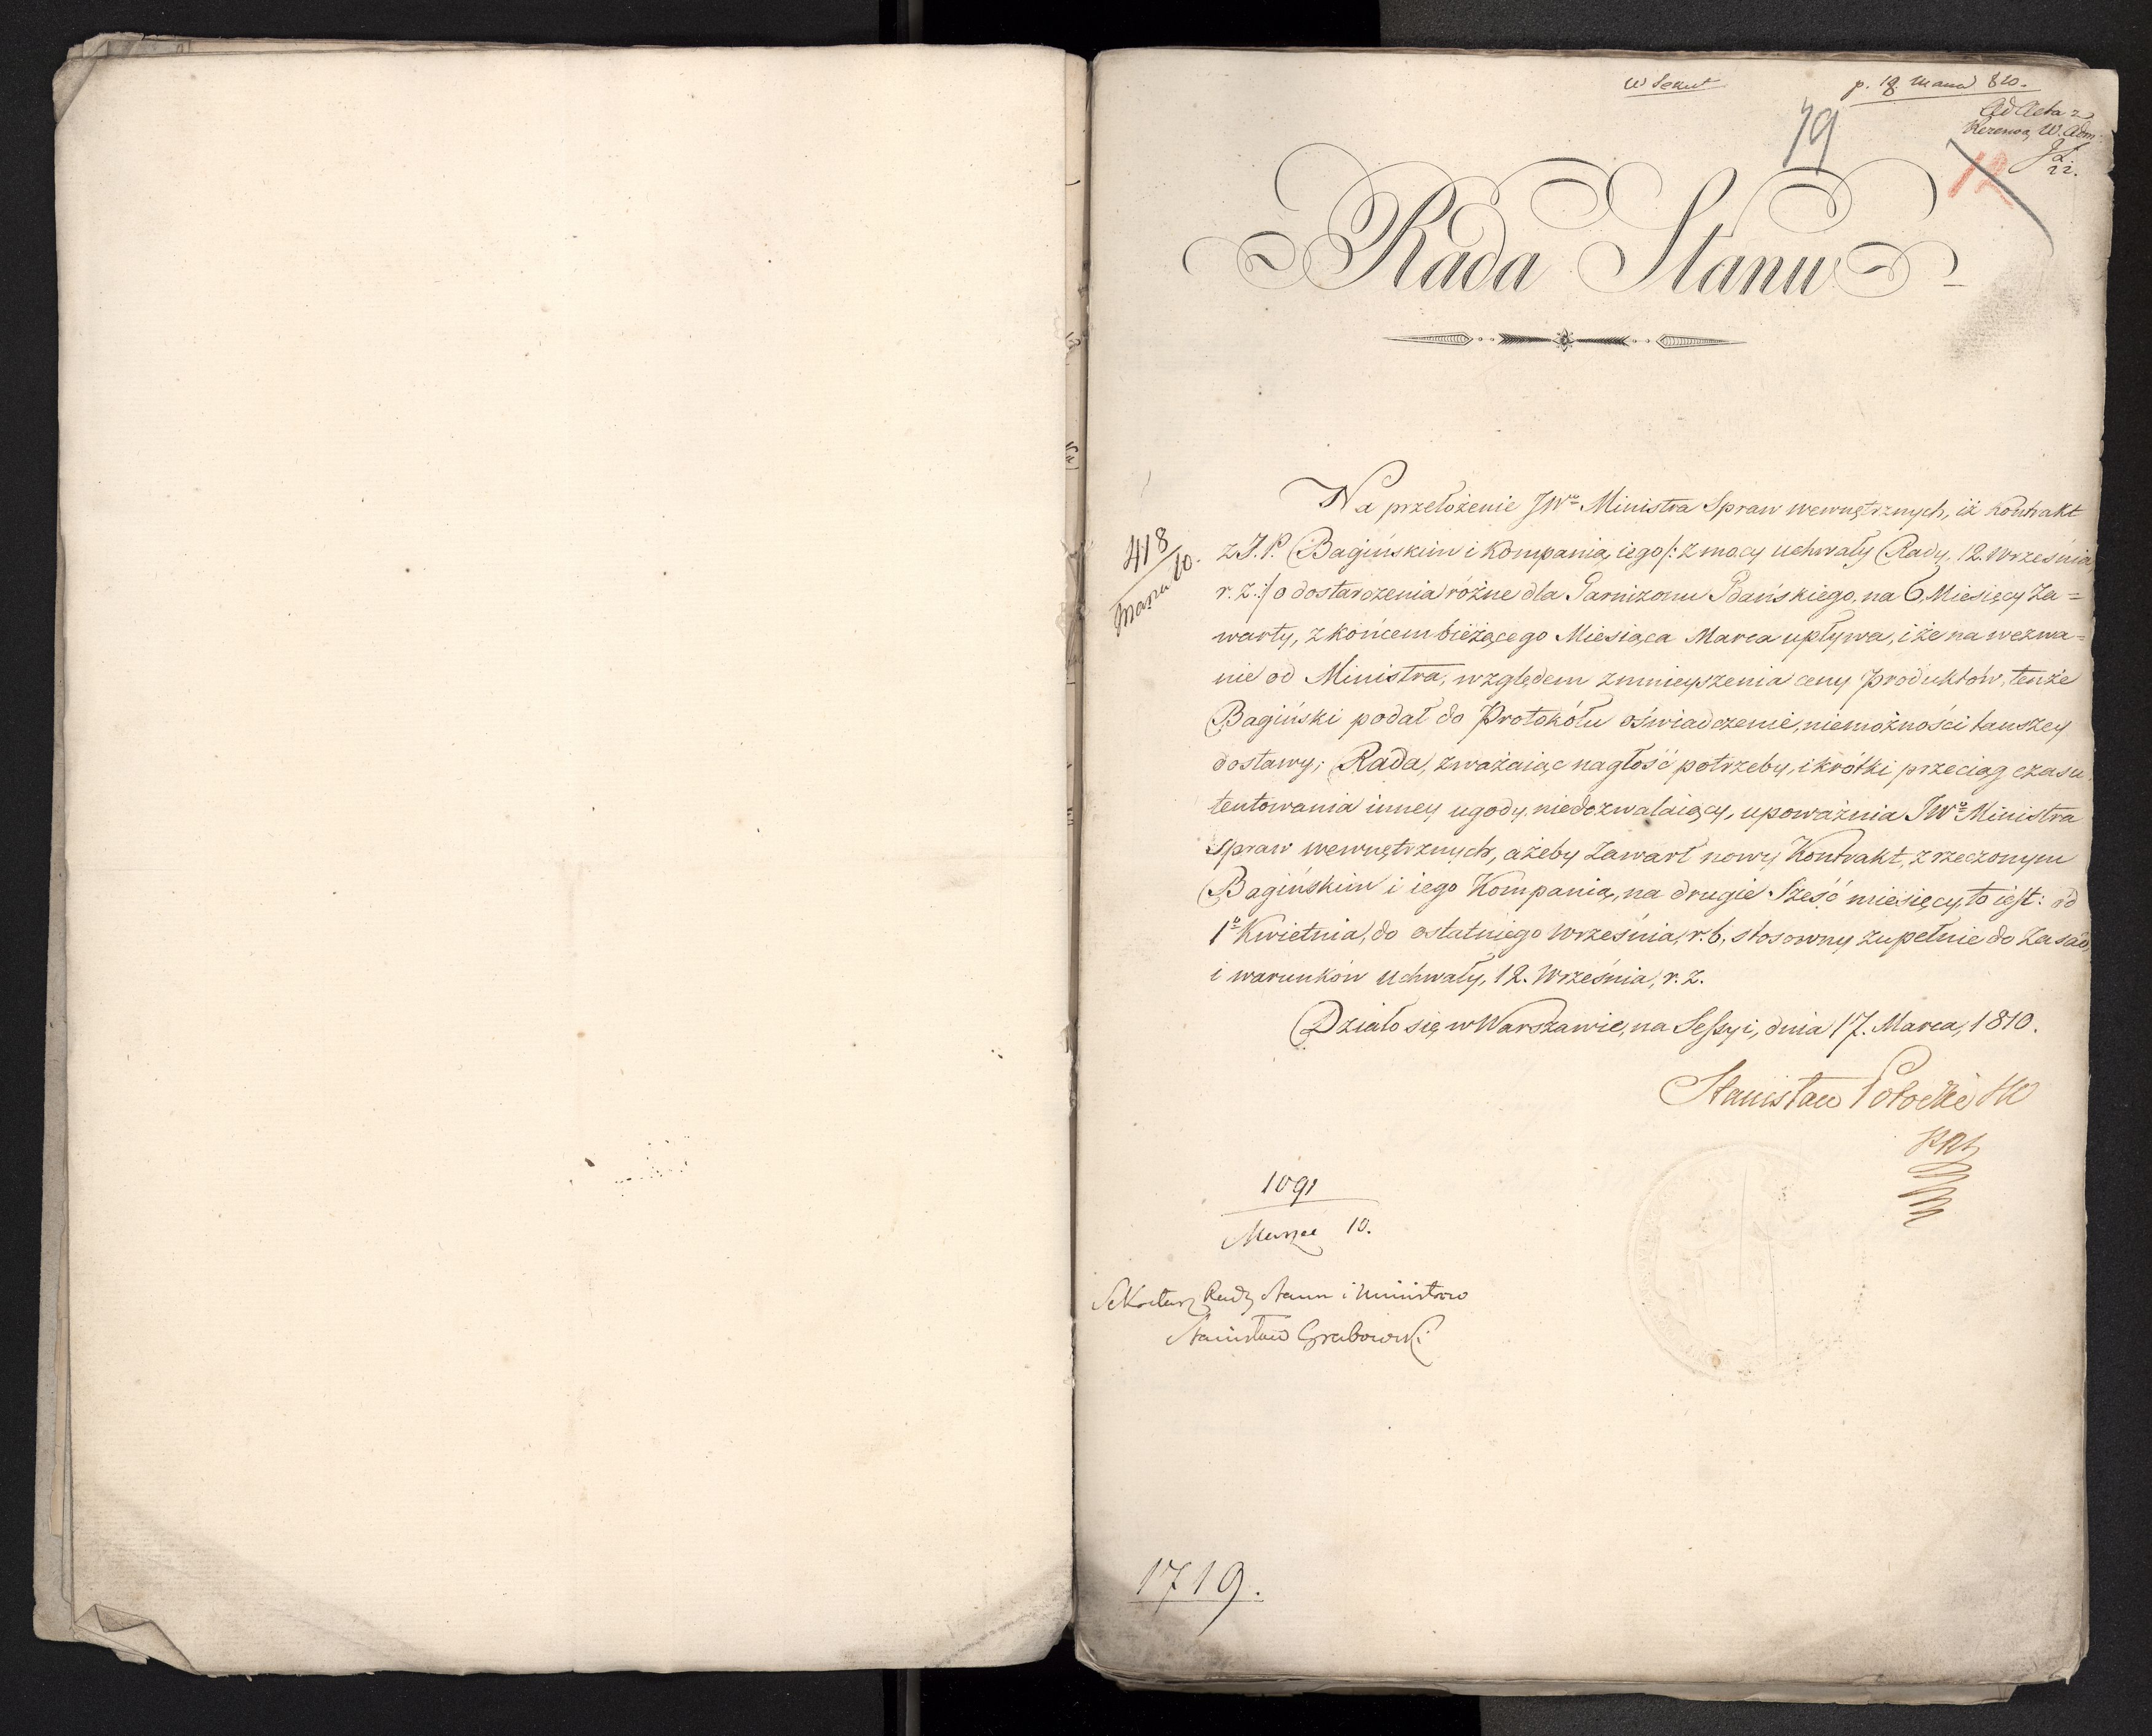 W Sekret
p. 19. Marca 810.
Ad Acta z
W. Adm.
22.
79
12
Rada Stanu
Na przełożenie JWo Ministra Spraw wewnętrznych, iż Kontrakt
418
Marca 10.
z J.P. Bagińskim i Kompanią iego /: z mocy uchwały Rady, 12. Września,
r. z :/ o dostarczenia różne dla Garnizonu Gdańskiego, na 6, Miesięcy za=
warty, z końcem bieżącego Miesiąca Marca upływa, i że na wezwa=
nie od Ministra, względem zmnieyszenia ceny Produktów, tenże
Bagiński podał do Protokółu oświadczenie, niemożności tańszey
dostawy; Rada, zważaiąc nagłość potrzeby, i krótki przeciąg czasu
tentowania inney ugody, niedozwalaiący, upoważnia JWo Ministra
Spraw wewnętrznych, ażeby zawarł nowy Kontrakt, z rzeczonym
Bagińskim i iego Kompanią, na drugie Sześć miesięcy, to iest: od
1o Kwietnia, do ostatniego Września, r. b, stosowny zupełnie do zasad,
i warunków uchwały, 12. Września, r. z.
Działo się w Warszawie, na Sessyi, dnia 17. Marca, 1810.
Stanisław Potocki
1091
Marca 10.
Sekretarz Rady Stanu i Ministrow
Stanisław Grabowski
1719.